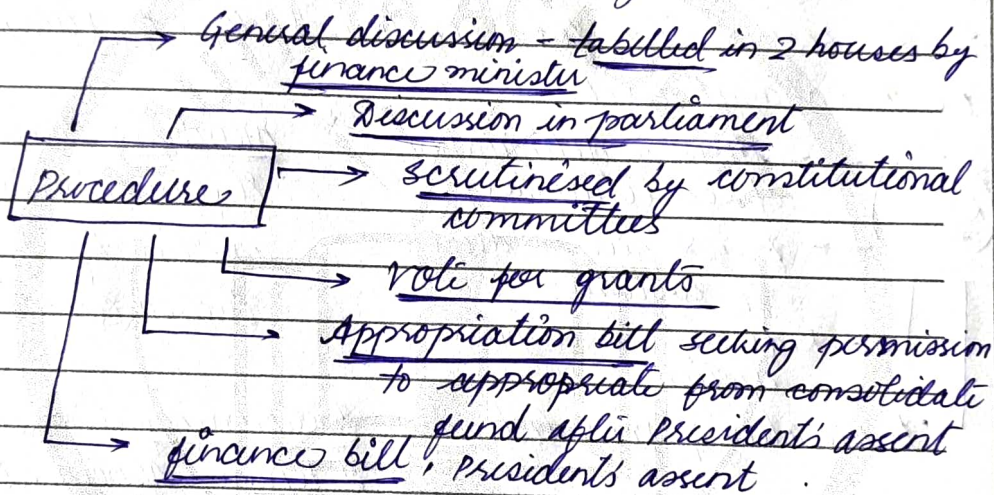 General discussion - tabelled in 2 houses by
finance minister
Discussion in parliament
Procedure
scrutinised by constitutional
committees
Vote for grants
Appropriation bill seeking permission
to appropriate from consolidate
fund after President's assent
finance bill, President's assent.